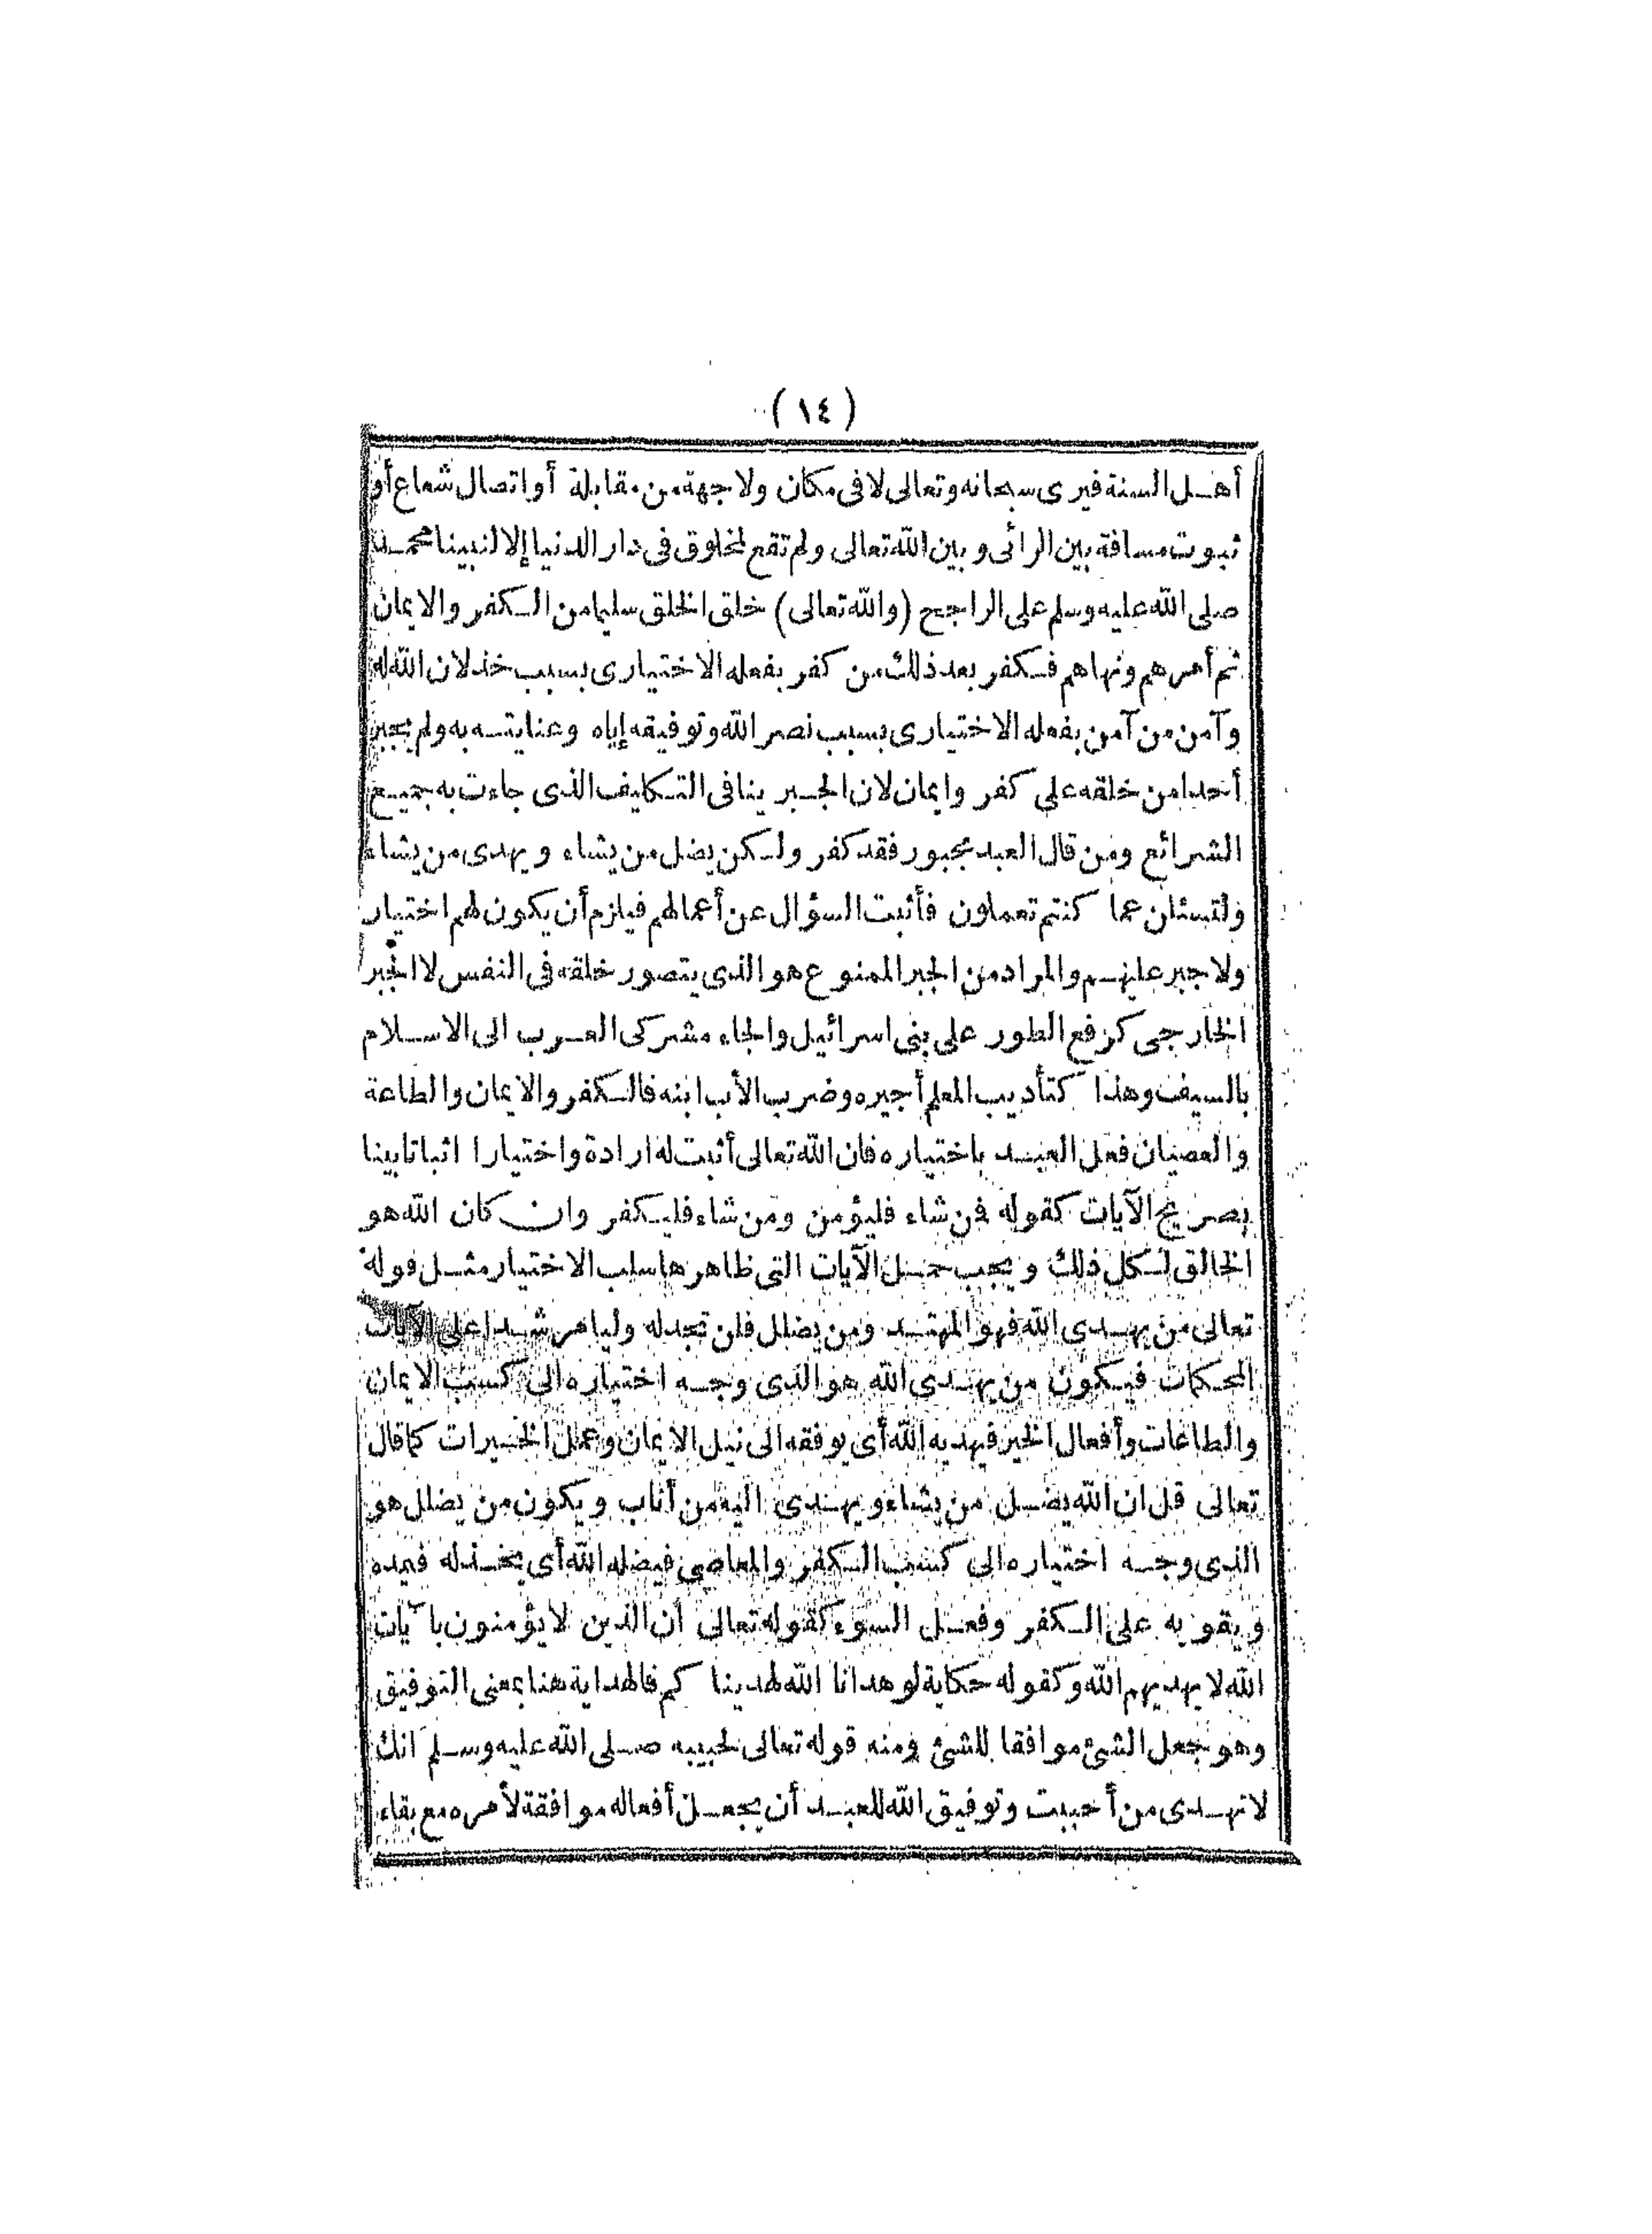 (١٤)
أهل السنة فيرى سبحانه وتعالى لا فى مكان ولا جهة من مقابلة أو اتصال شعاع أو
ثبوت مسافة بين الرائى وبين الله تعالى ولم تقع لمخلوق فى دار الدنيا إلا لنبينا محمد
صلى الله عليه وسلم على الراجح (والله تعالى) خلق الخلق سليما من الكفر والايمان
ثم أمرهم ونهاهم فكفر بعد ذلك من كفر بفعله الاختيارى بسبب خذلان الله له
وآمن من آمن بفعله الاختيارى بسبب نصر الله وتوفيقه إياه وعنايته به ولم يجبر
أحدا من خلقه على كفر وايمان لان الجبر ينافى التكليف الذى جاءت به جميع
الشرائع ومن قال العبد مجبور فقد كفر ولكن يضل من يشاء ويهدى من يشاء
ولتسئلن عما كنتم تعملون فأثبت السؤال عن أعمالهم فيلزم أن يكون لهم اختيار
ولا جبر عليهم والمراد من الجبر الممنوع هو الذى يتصور خلقه فى النفس لا الجبر
الخارجى كرفع الطور على بنى اسرائيل والجاء مشركى العرب الى الاسلام
بالسيف وهذا كتأديب المعلم أجيره وضرب الأب ابنه فالكفر والايمان والطاعة
والعصيان فعل العبد باختياره فان الله تعالى أثبت له ارادة واختيارا اثباتا بينا
بصريح الآيات كقوله فمن شاء فليؤمن ومن شاء فليكفر وان كان الله هو
الخالق لكل ذلك ويجب حمل الآيات التى ظاهرها سلب الاختيار مثل قوله
تعالى من يهدى الله فهو المهتد ومن يضلل فلن تجد له وليا مرشدا على الآيات
المحكمات فيكون من يهدى الله هو الذى وجه اختياره الى كسب الايمان
والطاعات وأفعال الخير فيهديه الله أى يوفقه الى نيل الايمان وعمل الخيرات كما قال
تعالى قل ان الله يضل من يشاء ويهدى اليه من أناب ويكون من يضلل هو
الذى وجه اختياره الى كسب الكفر والمعاصى فيضله الله أى يخذله فيمده
ويقويه على الكفر وفعل السوء كقوله تعالى ان الذين لا يؤمنون بآيات
الله لا يهديهم الله وكقوله حكاية لو هدانا الله لهديناكم فالهداية هنا بمعنى التوفيق
وهو جعل الشئ موافقا للشئ ومنه قوله تعالى لحبيبه صلى الله عليه وسلم انك
لا تهدى من أحببت وتوفيق الله للعبد أن يجعل أفعاله موافقة لأمره مع بقاء